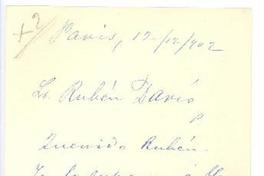 Paris, 12-12/902
Sr. Rubén Darío
P
Querido Rubén.